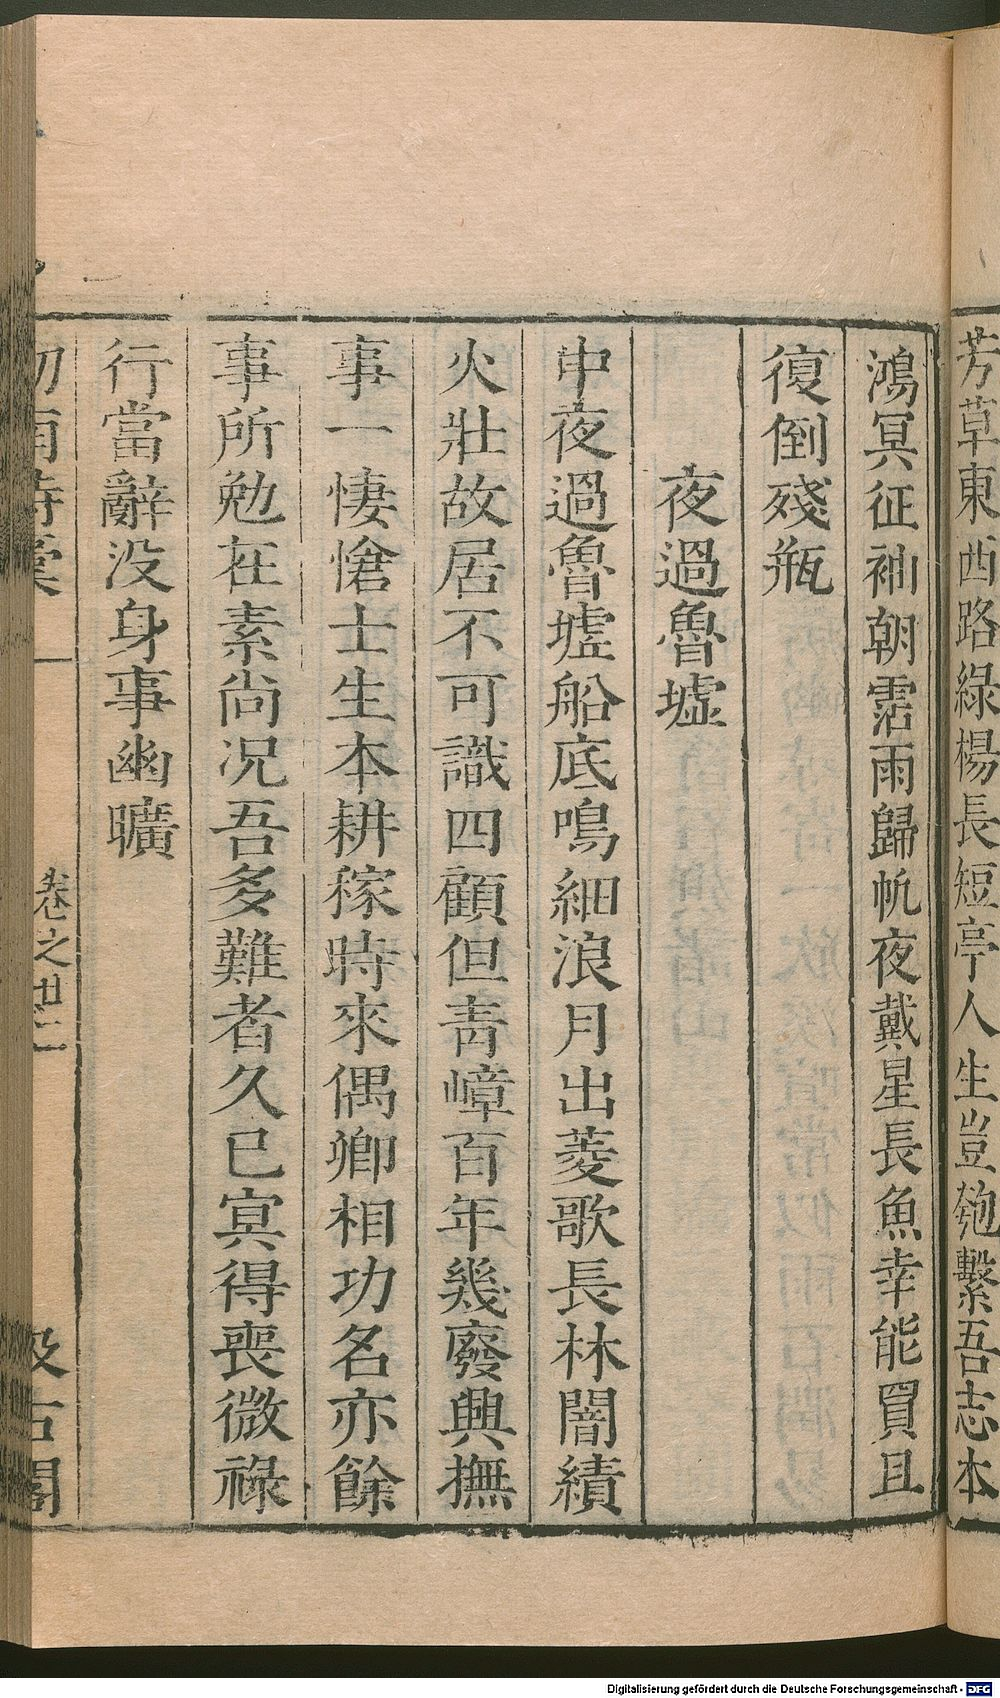 芳草東西路綠楊長短亭人生豈匏繫吾志本
鴻冥征袖朝霑雨歸帆夜戴星長魚幸能買且
復倒殘瓶
夜過魯墟
中夜過魯墟船底鳴細浪月出菱歌長林闇績
火壯故居不可識四顧但青嶂百年幾廢興撫
事一悽愴士生本耕稼時來偶卿相功名亦餘
事所勉在素尚况吾多難者久已寘得喪微祿
行當辭没身事幽曠
卷之卄二
汲古閣
Digitalisierung gefördert durch die Deutsche Forschungsgemeinschaft - DFG